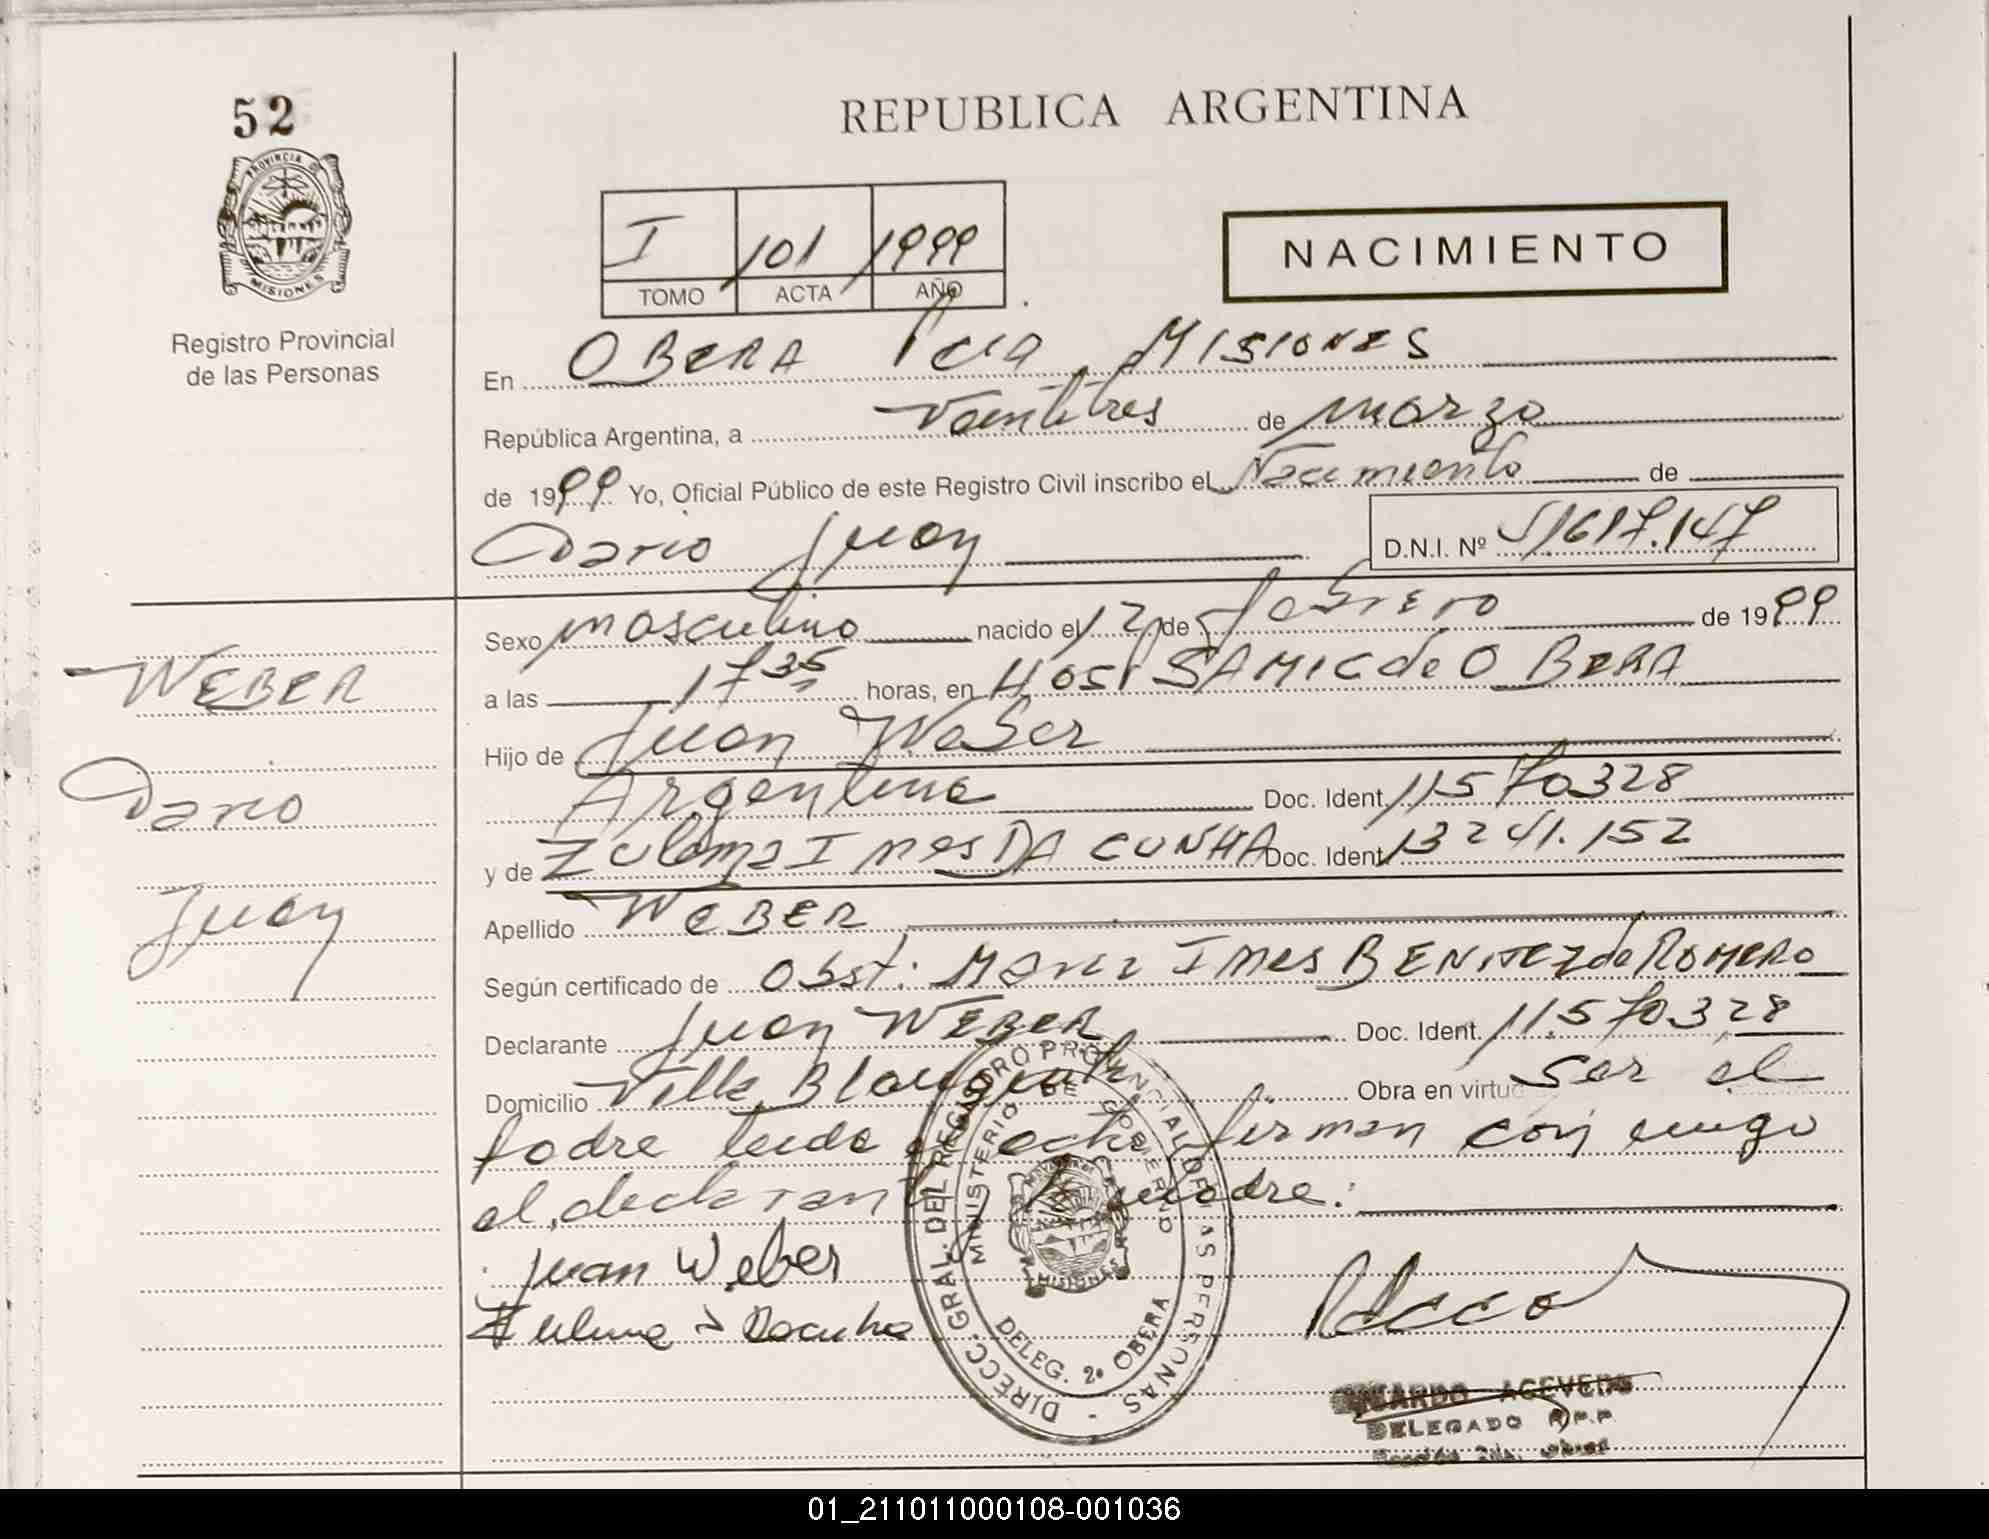 52
PROVINCIA D
MISIONES
Registro Provincial
de las Personas
REPUBLICA ARGENTINA
I 101 1999
TOMO ACTA AÑO
NACIMIENTO
En OBERA Pcia MISIONES
República Argentina, a Veintitres de marzo
de 1999 Yo, Oficial Público de este Registro Civil inscribo el Nacimiento de
Dario Juan D.N.I. Nº
Sexo masculino nacido el 12 de Febrero de 1999
a las 17 35 horas, en Hosp SAMIC de OBERA
Hijo de Juan Weber
Argentino Doc. Ident. 11570328
y de Zulema Ines DA CUNHA Doc. Ident. 13241.152
Apellido WEBER
Según certificado de Obst: Maria Ines BENITEZ de ROMERO
Declarante Juan WEBER Doc. Ident. 11.570328
Domicilio Villa Blanquita Obra en virtud ser el
Padre leida el acta firman conmigo
el declarante y la madre:
Juan Weber
Zulema I Dacunha
WEBER
Dario
Juan
DIRECC. GRAL. DEL REGISTRO PROVINCIAL DE LAS PERSONAS -
MINISTERIO DE GOBIERNO
MISIONES
DELEG. 2º OBERA
ACEVEDO
DELEGADO R.P.P
01_211011000108-001036